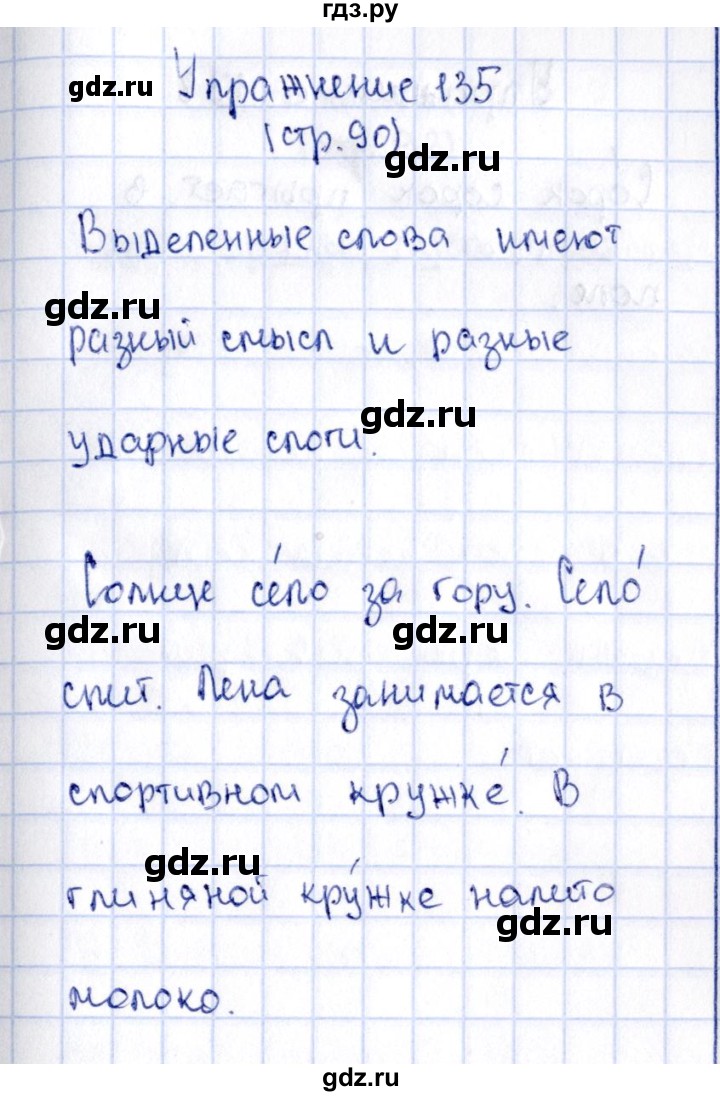 гдз.ру
gdz.ru Упражнение 135
(стр.90)
gdz.ru
Выделенные слова имеют
gdz.ru
разный смысл и разные
gdz.ru
ударные слоги.
Солнце се́ло за гору. Село́
gdz.ru gdz.ru
спит. Лена занимается в
спортивном кружке́. В
gdz.ru
глиняной кру́жке налито
gdz.ru
молоко.
gdz.ru